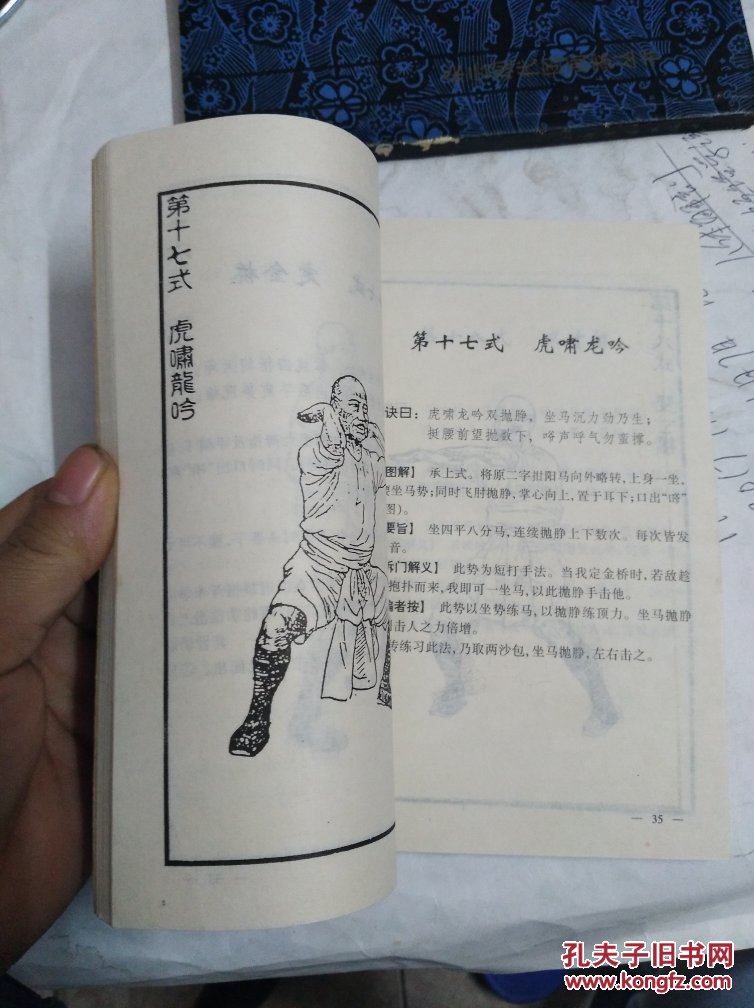 第十七式 虎嘯龍吟
第十七式 虎啸龙吟
诀曰：虎啸龙吟双抛胂，坐马沉力劲乃生；
挺腰前望抛数下，喀声呼气勿蛮撑。
图解】 承上式。将原二字拑阳马向外略转，上身一坐，
坐马势；同时飞肘抛脖，掌心向上，置于耳下；口出“喀”
图）。
要旨】 坐四平八分马，连续抛脖上下数次。每次皆发
音。
拆门解义】 此势为短打手法。当我定金桥时，若敌趁
抱扑而来，我即可一坐马，以此抛脖手击他。
编者按】 此势以坐势练马，以抛脖练顶力。坐马抛脖
击人之力倍增。
传练习此法，乃取两沙包，坐马抛脖，左右击之。
— 35 —
孔夫子旧书网
www.kongfz.com